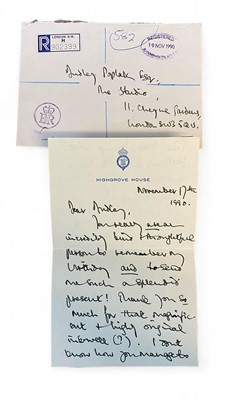 LONDON S.W.
R
M
002399
582
REGISTERED
19 NOV 1990
Dudley Poplak Esq.,
The Studio,
11, Cheyne Gardens,
London SW3 5QU.
HIGHGROVE HOUSE
November 17th
1990.
Dear Dudley,
You really are an
incredibly kind & thoughtful
person to remember my
birthday and to send
me such a splendid
present! Thank you so
much for that magnificent
& highly original
inkwell (?). I don't
know how you manage to